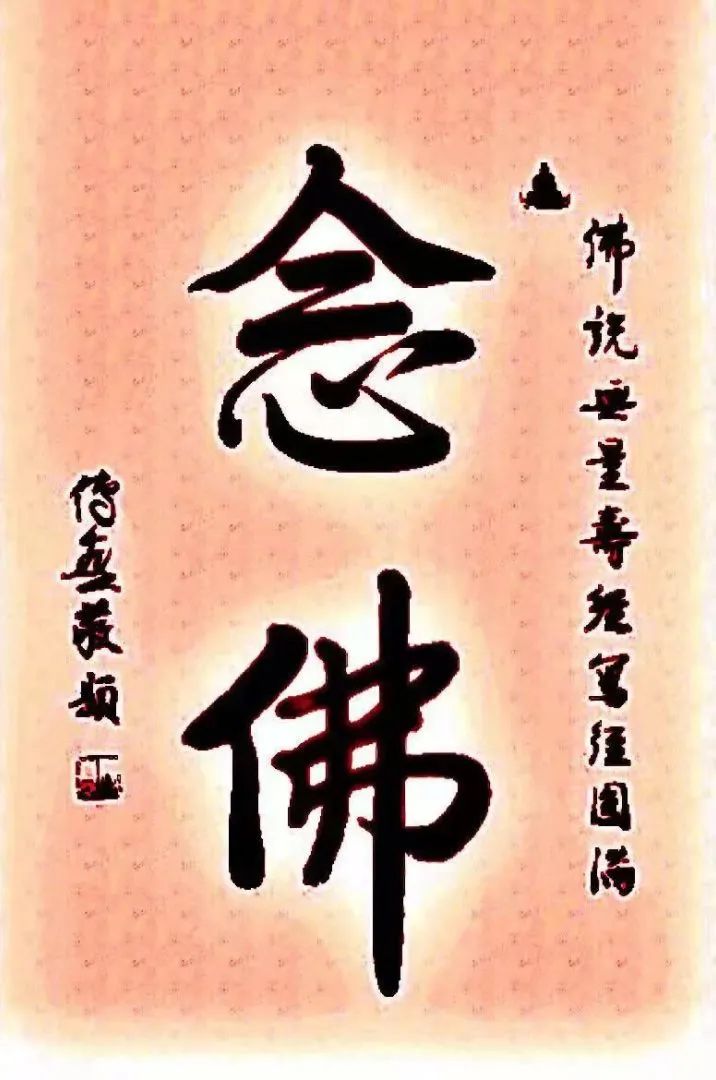 佛說無量壽經寫經圓滿
念佛
敬題